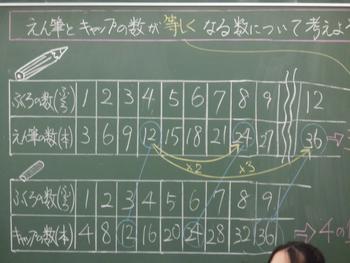 えん筆とキャップの数が等しくなる数について考えよ
ふくろの数(ふくろ) 1 2 3 4 5 6 7 8 9 12
えん筆の数(本) 3 6 9 12 15 18 21 24 27 36 ⇒3
×2 ×3
ふくろの数(ふくろ) 1 2 3 4 5 6 7 8 9
キャップの数(本) 4 8 12 16 20 24 28 32 36 ⇒4の